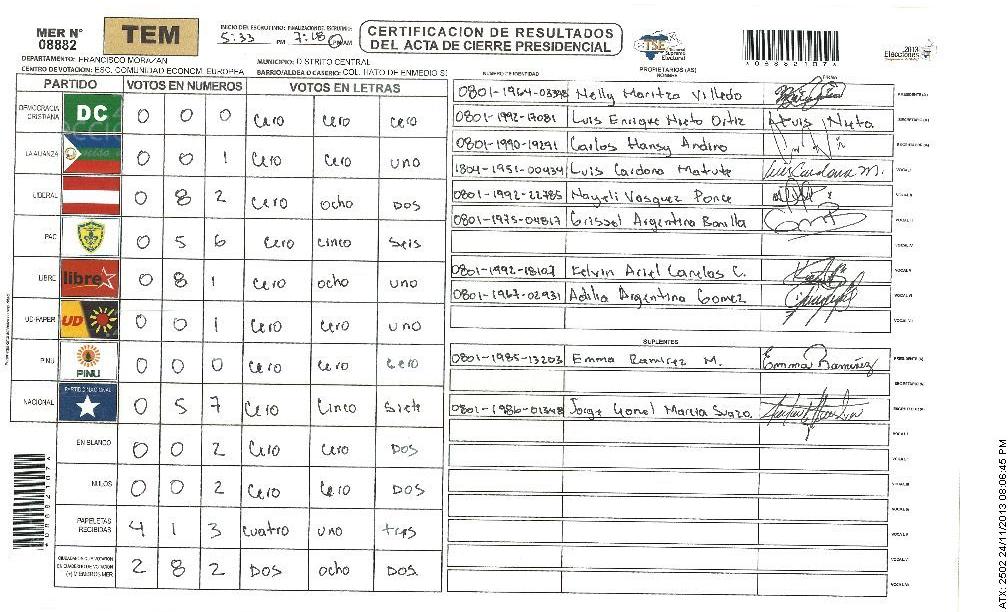 MER N° 08882
TEM
INICIO DEL ESCRUTINIO: 5:33 PM FINALIZACION DEL ESCRUTINIO: 7:18 PM AM
CERTIFICACION DE RESULTADOS
DEL ACTA DE CIERRE PRESIDENCIAL
TSE Tribunal Supremo Electoral
2013 Elecciones
DEPARTAMENTO: FRANCISCO MORAZAN MUNICIPIO: DISTRITO CENTRAL
CENTRO DE VOTACION: ESC. COMUNIDAD ECONM. EUROPEA BARRIO/ALDEA O CASERIO: COL. HATO DE ENMEDIO S
PARTIDO VOTOS EN NUMEROS VOTOS EN LETRAS
DEMOCRACIA CRISTIANA DC 0 0 0 Cero Cero cero
LA ALIANZA 0 0 1 Cero Cero uno
LIBERAL 0 8 2 Cero ocho Dos
PAC 0 5 6 Cero cinco Seis
LIBRE libre 0 8 1 Cero ocho uno
UD-FAPER UD 0 0 1 Cero Cero uno
PINU PINU 0 0 0 Cero Cero Cero
NACIONAL PARTIDO NACIONAL 0 5 7 Cero Cinco Siete
EN BLANCO 0 0 2 Cero Cero Dos
NULOS 0 0 2 Cero Cero Dos
PAPELETAS RECIBIDAS 4 1 3 Cuatro uno tres
(+) MIEMBROS MER 2 8 2 Dos ocho Dos
NUMERO DE IDENTIDAD PROPIETARIOS (AS) NOMBRE FIRMA
0801-1964-03398 Nelly Maritza Villedo PRESIDENTE (A)
0801-1992-17081 Luis Enrique Nieto Ortiz Luis Nieto SECRETARIO (A)
0801-1990-19291 Carlos Hansy Andino ESCRUTADOR (A)
1804-1951-00434 Luis Cardona Matute Luis Cardona M. VOCAL I
0801-1992-22785 Nayeli Vasquez Ponce VOCAL II
0801-1975-04817 Grissel Argentina Bonilla VOCAL III
VOCAL IV
0801-1992-18107 Kelvin Ariel Canelas C. VOCAL V
0801-1967-02931 Adilia Argentina Gomez VOCAL VI
VOCAL VII
SUPLENTES
0801-1985-13203 Emma Ramirez M. Emma Ramirez PRESIDENTE (A)
SECRETARIO (A)
0801-1986-01348 Jorge Lionel Murcia Suazo. ESCRUTADOR (A)
VOCAL I
VOCAL II
VOCAL III
VOCAL IV
VOCAL V
VOCAL VI
VOCAL VII
ATX-2502 24/11/2013 08:06:45 PM